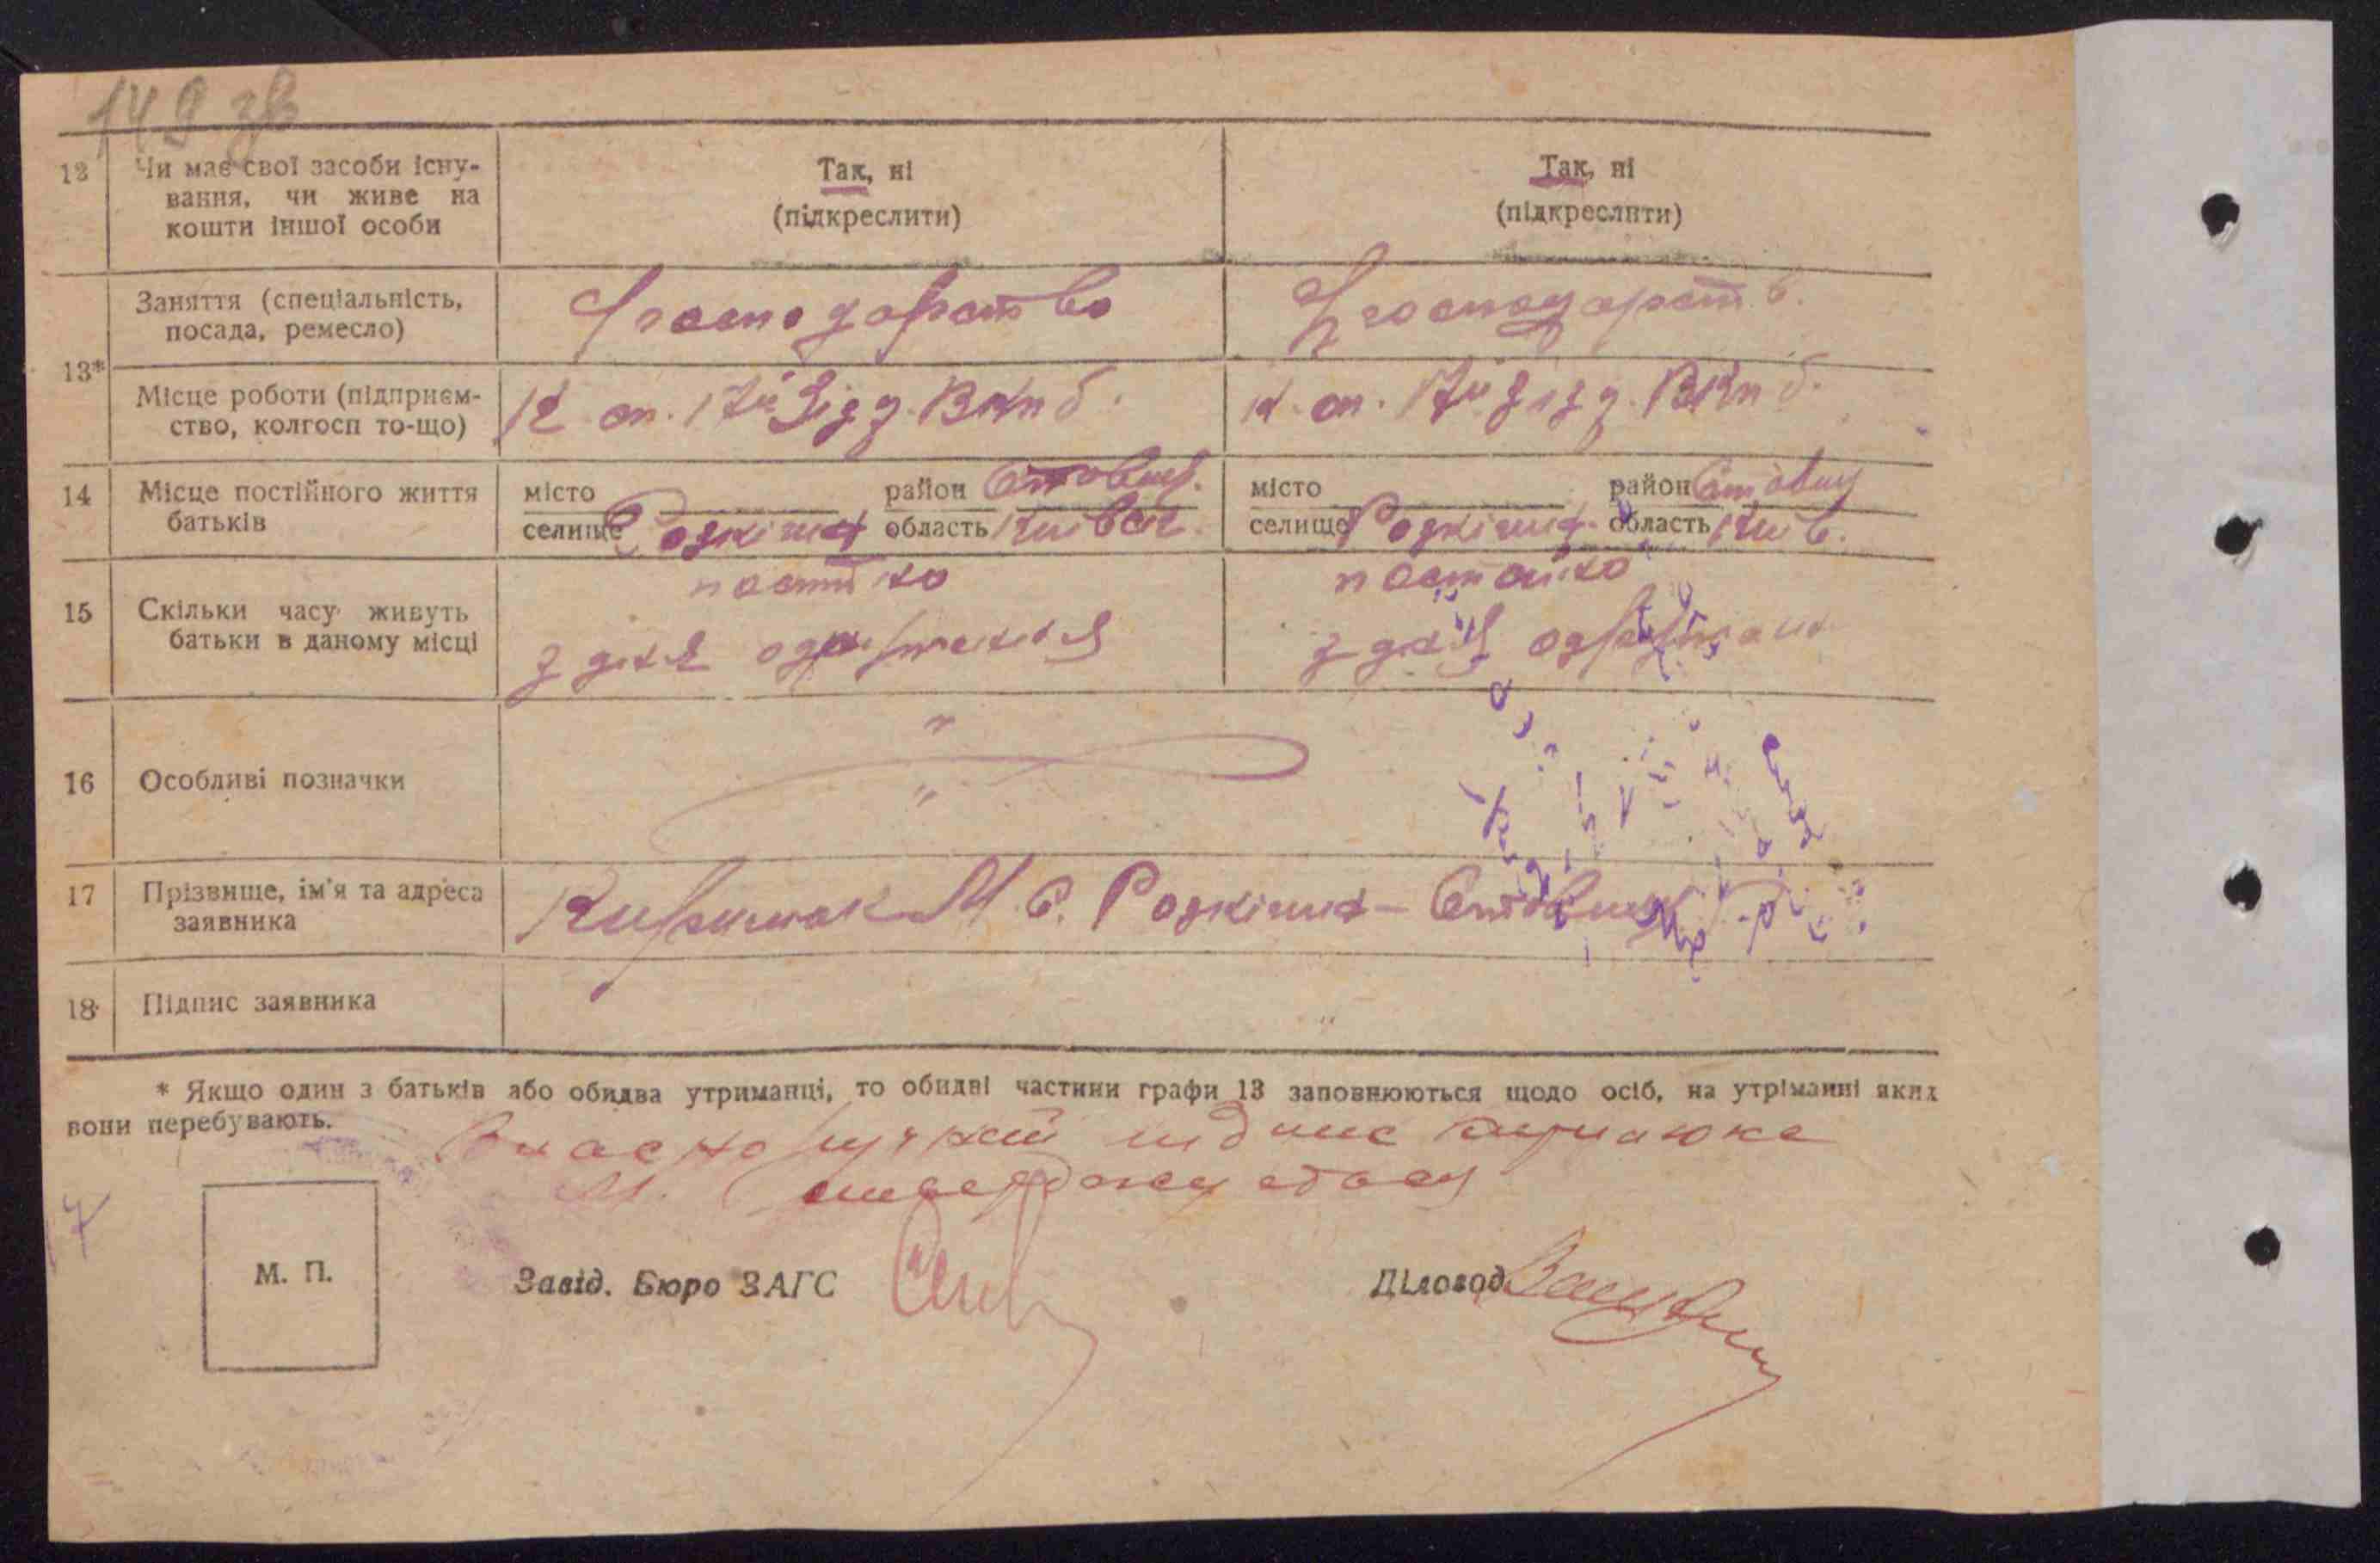 149 зв
12 Чи має свої засоби існу-
вання, чи живе на
кошти іншої особи
Так, ні
(підкреслити)
Так, ні
(підкреслити)
13*
Заняття (спеціальність,
посада, ремесло)
Господарство
Господарств.
Місце роботи (підприєм-
ство, колгосп то-що)
К-сп. 17й Зізд ВКПб.
К-сп. 17й Зізд ВКПб.
14 Місце постійного життя
батьків
місто район Ставищ.
селище Розкішна область Київськ.
місто район Ставищ
селище Розкішна область Київ.
15 Скільки часу живуть
батьки в даному місці
з дня
постійно
з дня
16 Особливі позначки
17 Прізвище, ім'я та адреса
заявника
М. С. Розкішна - Ставищ
18 Підпис заявника
* Якщо один з батьків або обидва утриманці, то обидві частини графи 13 заповнюються щодо осіб, на утріманні яких
вони перебувають.
Власноручний підпис
М.
М. П.
Завід. Бюро ЗАГС
Діловод